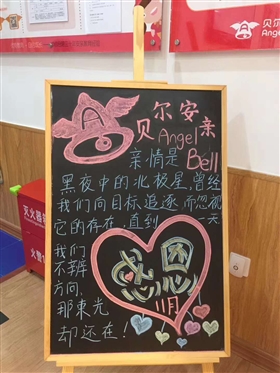 贝尔安亲
Angel
Bell
亲情是
黑夜中的北极星,曾经
我们向目标追逐而忽视
它的存在,直到一天
我们
不辨
方向,
那束光
却还在!
感恩
11月
贝尔
灭火器
火警